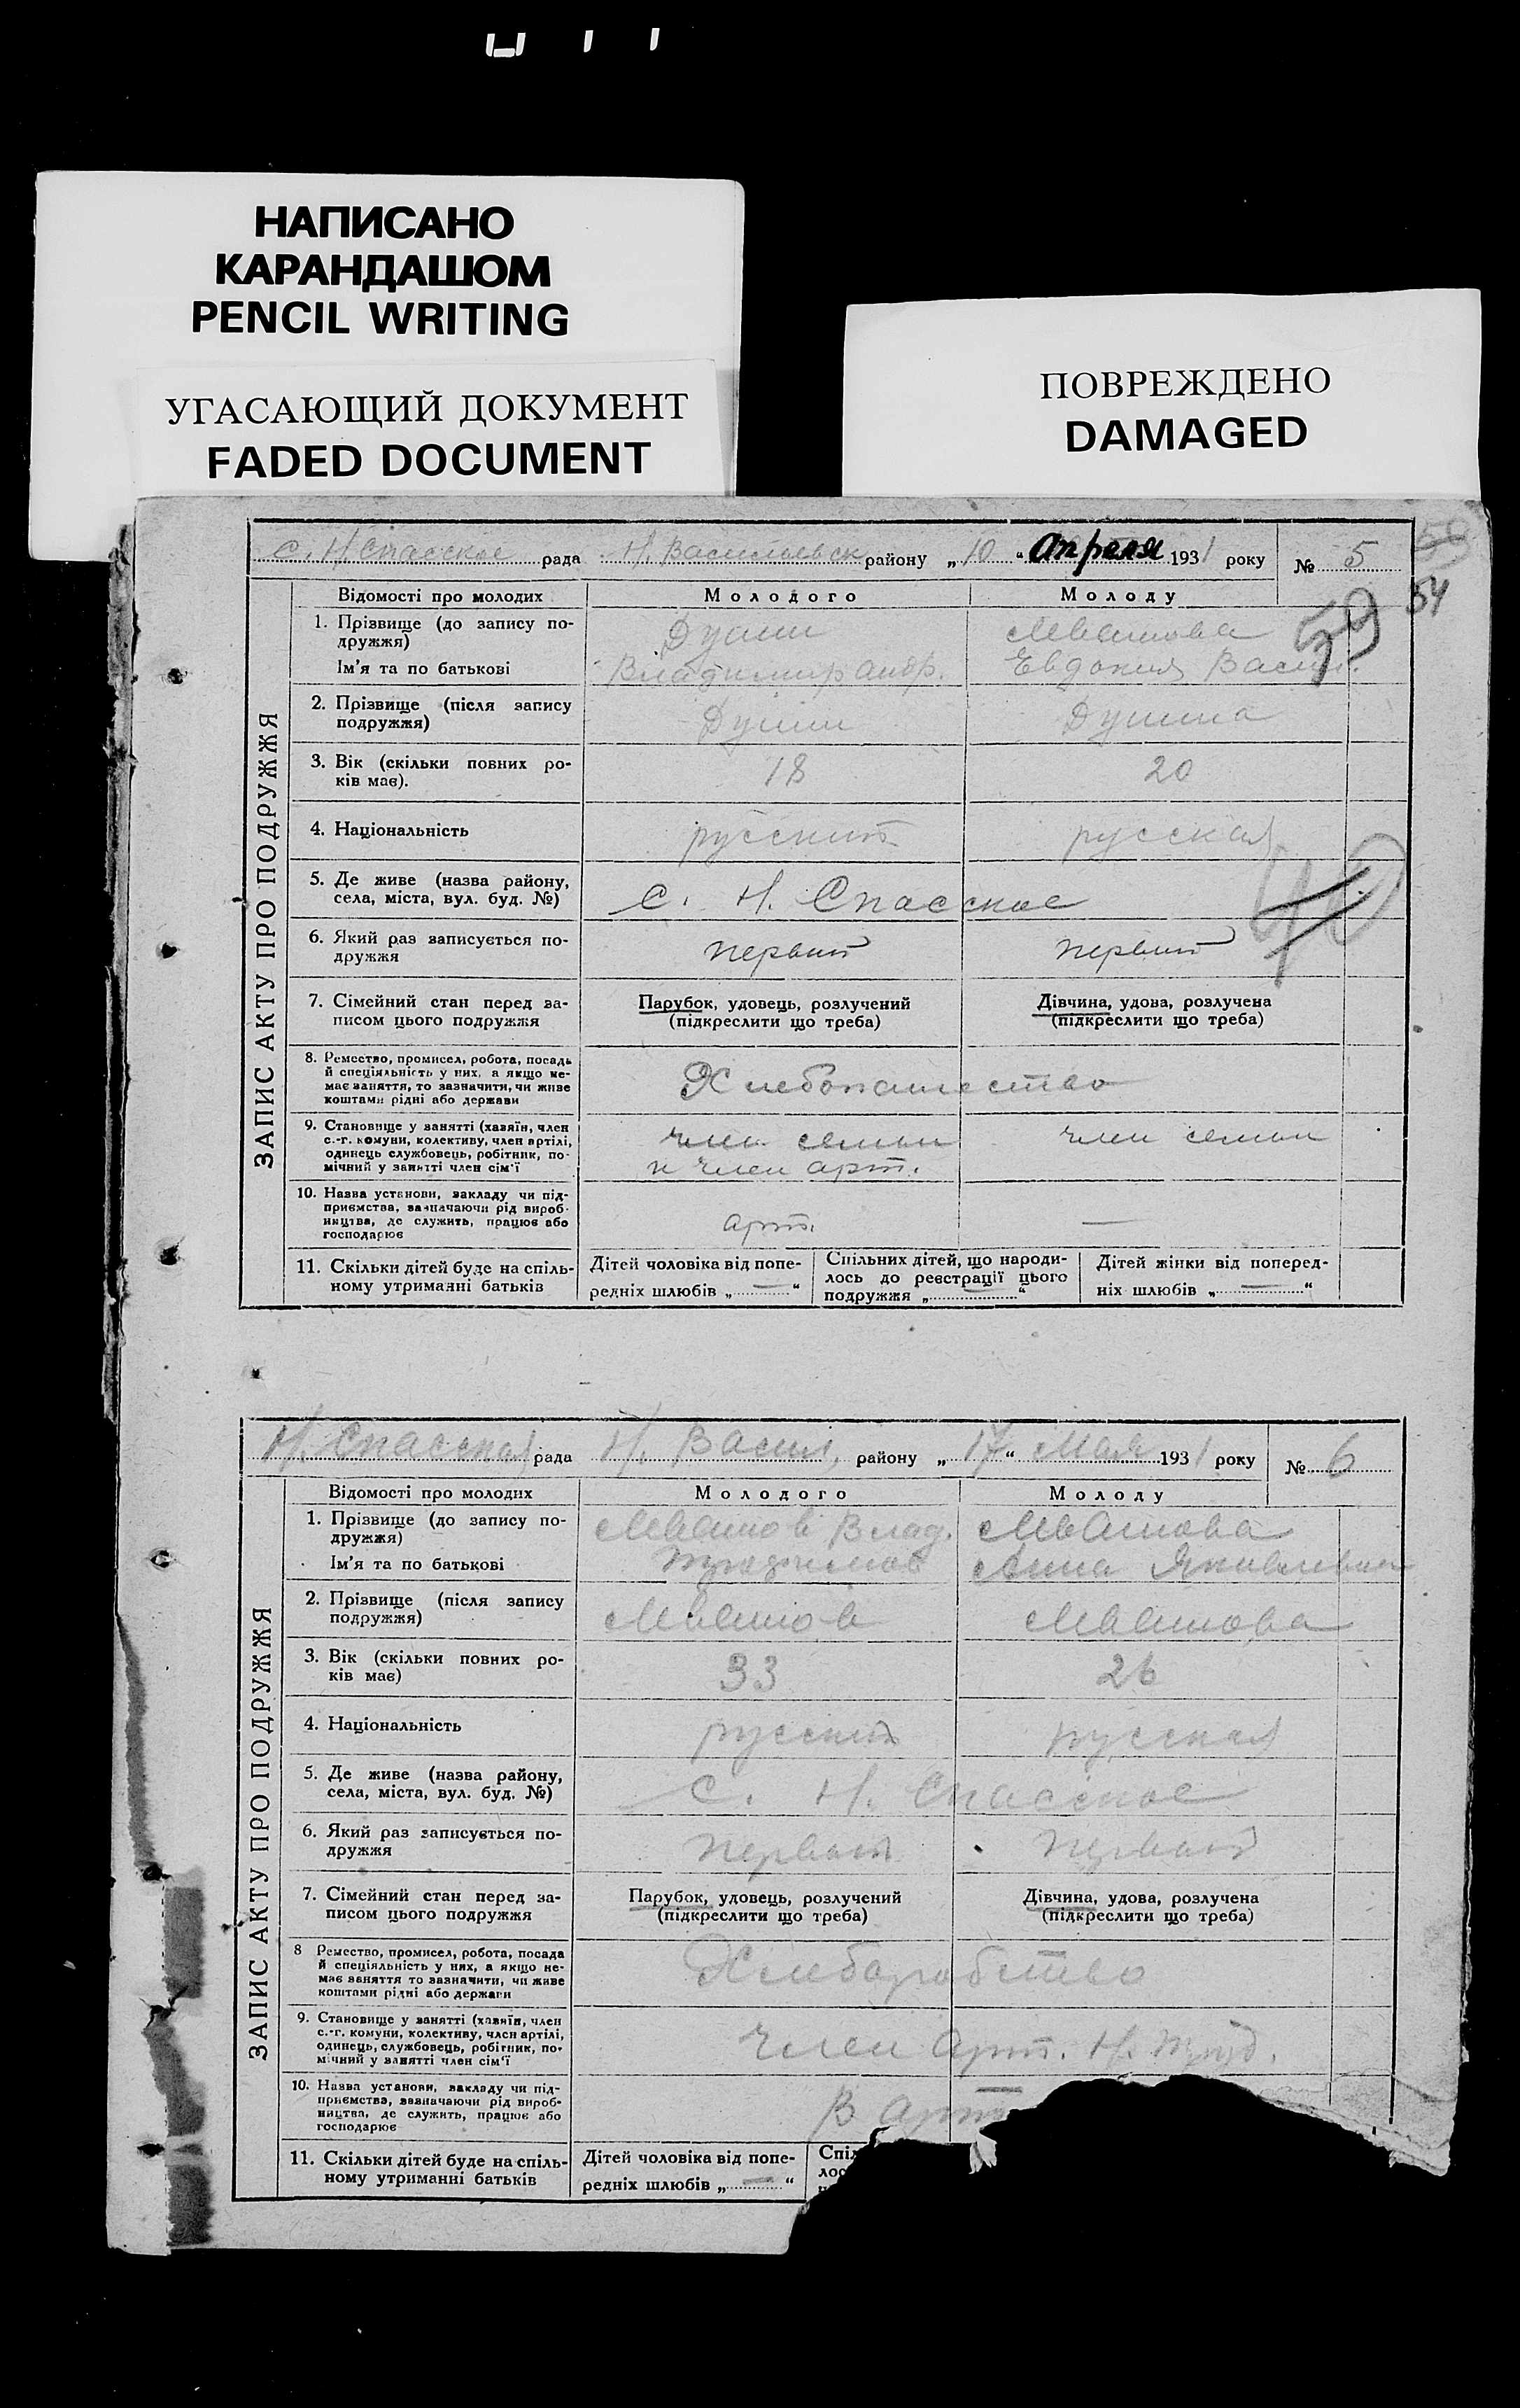 НАПИСАНО
КАРАНДАШОМ
PENCIL WRITING
УГАСАЮЩИЙ ДОКУМЕНТ
FADED DOCUMENT
ПОВРЕЖДЕНО
DAMAGED
с. Н. Спасское рада Н. Васильевск району „10“ Апреля 1931 року № 5
59
54
ЗАПИС АКТУ ПРО ПОДРУЖЖЯ
Відомості про молодих Молодого Молоду
1. Прізвище (до запису по-
дружжя)
Душин Ивашова
Ім'я та по батькові Владимир Андр. Евдокия Васил.
2. Прізвище (після запису
подружжя)
Душин Душина
3. Вік (скільки повних ро-
ків має).
18 20
4. Національність русский русская
40
5. Де живе (назва району,
села, міста, вул. буд. №)
с. Н. Спасское
6. Який раз записується по-
дружжя
первый первый
7. Сімейний стан перед за-
писом цього подружжя
Парубок, удовець, розлучений
(підкреслити що треба)
Дівчина, удова, розлучена
(підкреслити що треба)
8. Ремество, промисел, робота, посада
й спеціяльність у них, а якщо не-
має заняття, то зазначити, чи живе
коштами рідні або держави
Хлебопашество
9. Становище у занятті (хазяїн, член
с.-г. комуни, колективу, член артілі,
одинець службовець, робітник, по-
мічний у занятті член сім'ї
член семьи
и член арт.
член семьи
10. Назва установи, закладу чи під-
приємства, зазначаючи рід вироб-
ництва, де служить, працює або
господарює
арт. —
11. Скільки дітей буде на спіль-
ному утриманні батьків
Дітей чоловіка від попе-
редніх шлюбів „—“
Спільних дітей, що народи-
лось до реєстрації цього
подружжя „—“
Дітей жінки від поперед-
ніх шлюбів „—“
Н. Спасская рада Н. Васил. району „17“ Мая 1931 року № 6
ЗАПИС АКТУ ПРО ПОДРУЖЖЯ
Відомості про молодих Молодого Молоду
1. Прізвище (до запису по-
дружжя)
Ивашов Влад. Ивашова
Ім'я та по батькові Анна Яковлевна
2. Прізвище (після запису
подружжя)
Ивашов Ивашова
3. Вік (скільки повних ро-
ків має)
33 26
4. Національність русский русская
5. Де живе (назва району,
села, міста, вул. буд. №)
с. Н. Спасское
6. Який раз записується по-
дружжя
первый первый
7. Сімейний стан перед за-
писом цього подружжя
Парубок, удовець, розлучений
(підкреслити що треба)
Дівчина, удова, розлучена
(підкреслити що треба)
8 Ремество, промисел, робота, посада
й спеціяльність у них, а якщо не-
має заняття то зазначити, чи живе
коштами рідні або держави
Хлеборобство
9. Становище у занятті (хазяїн, член
с.-г. комуни, колективу, член артілі,
одинець, службовець, робітник, по-
мічний у занятті член сім'ї
член арт. Н. Труд.
10. Назва установи, закладу чи під-
приємства, зазначаючи рід вироб-
ництва, де служить, працює або
господарює
в арт
11. Скільки дітей буде на спіль-
ному утриманні батьків
Дітей чоловіка від попе-
редніх шлюбів „—“
Спіл
лос